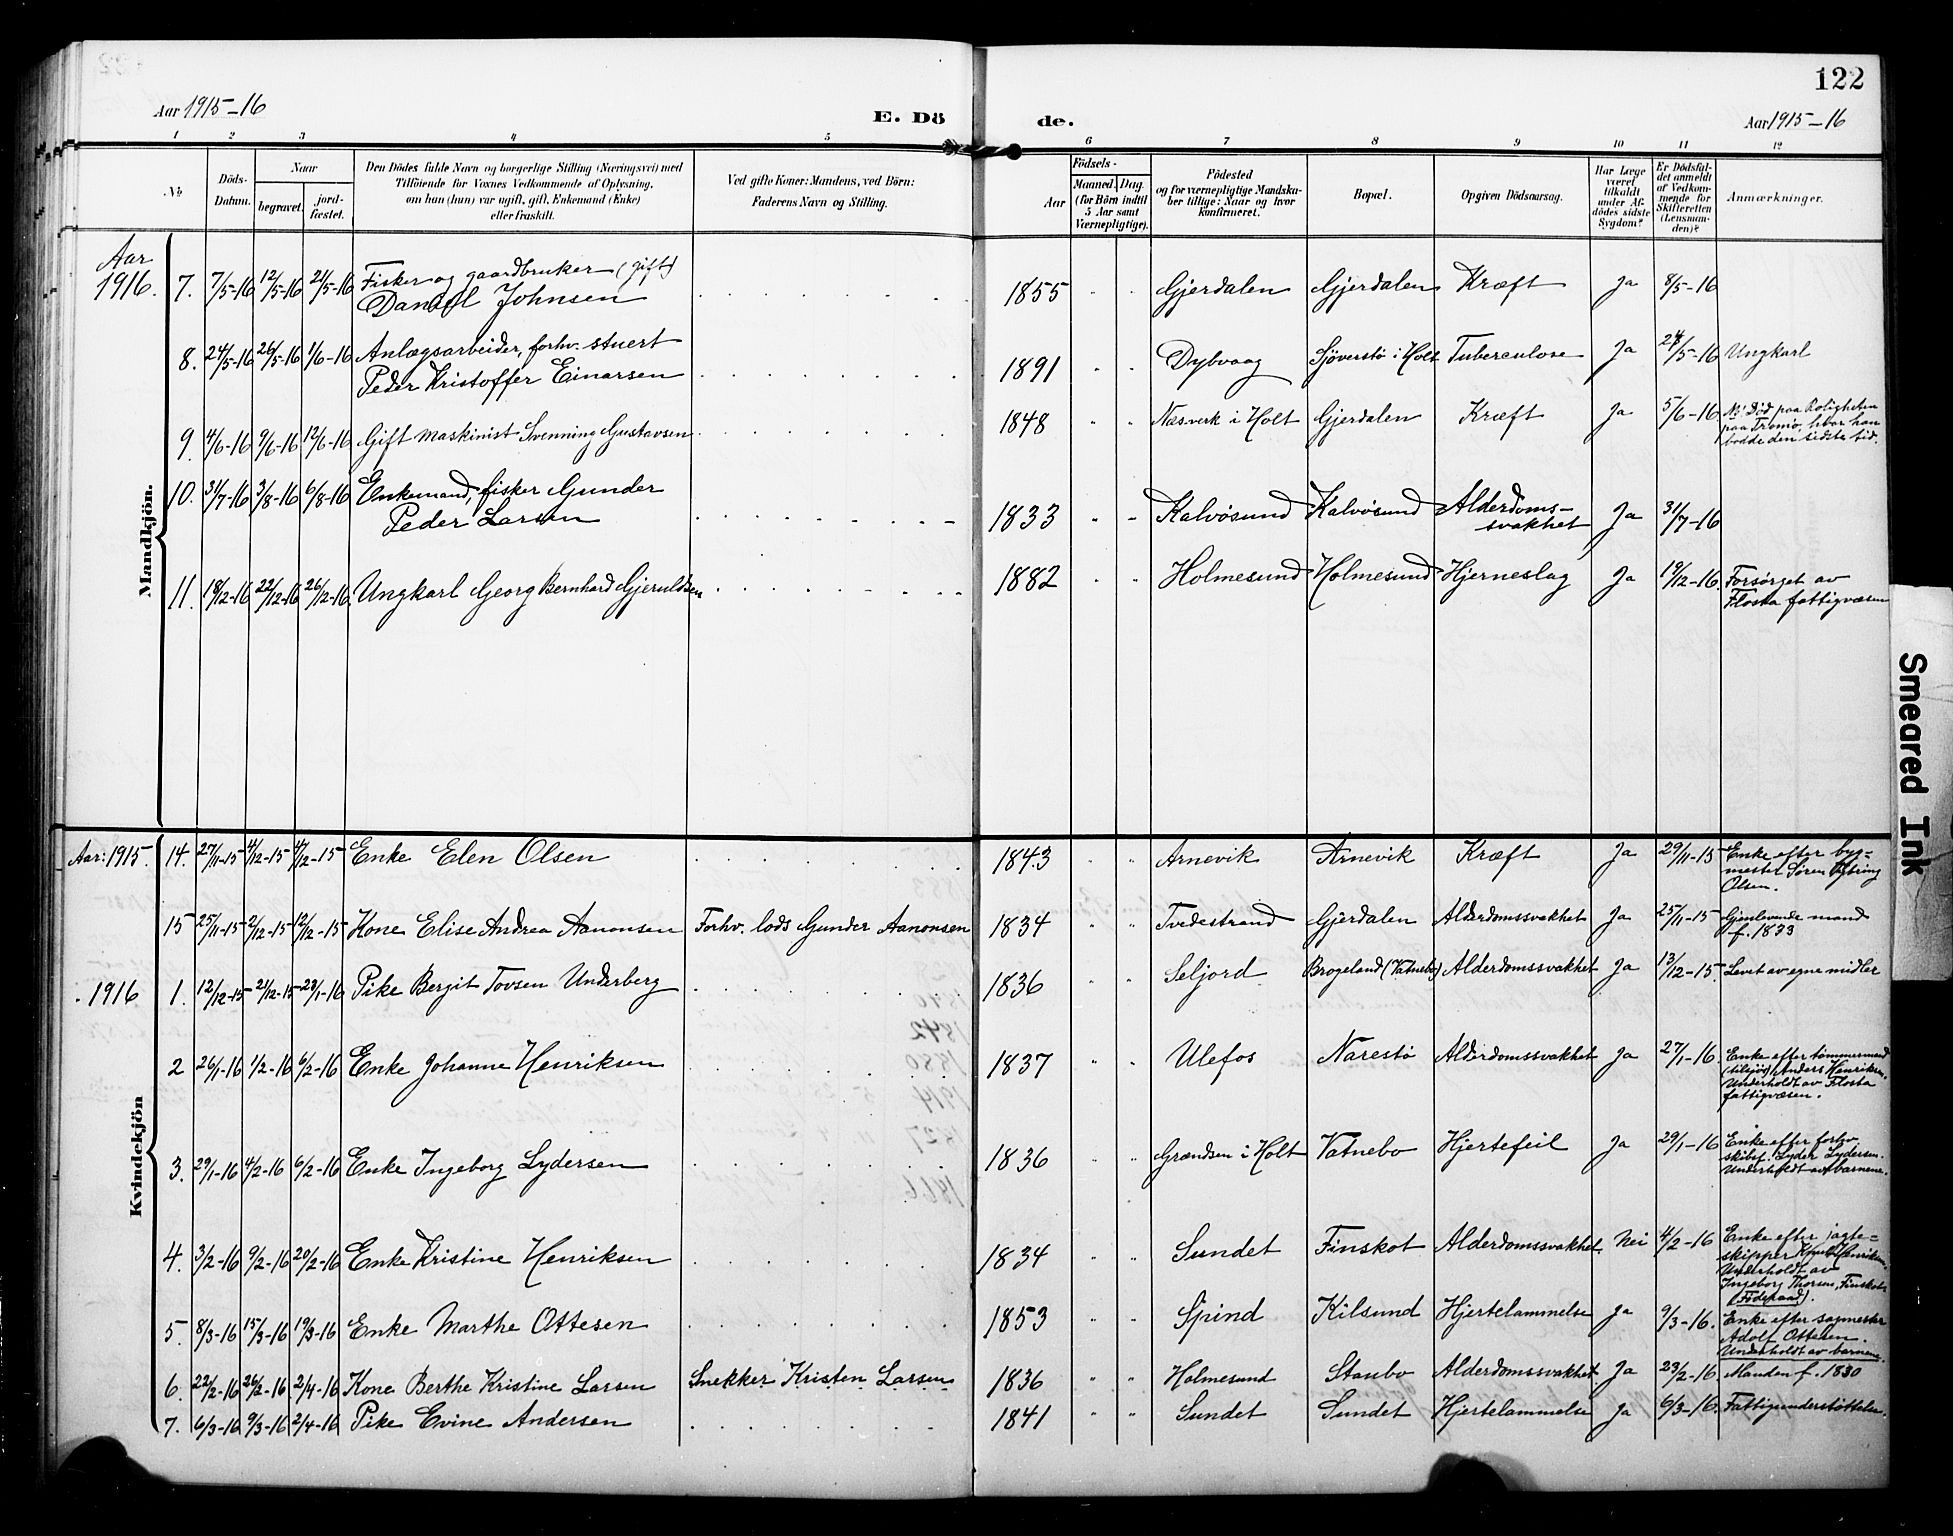 122
Aar 1915-16 E. Dö de. Aar 1915-16
1 2 3 4 5 6 7 8 9 10 11 12
No. Döds-Datum. Naar begravet. jordfæstet. Den Dödes fulde Navn og borgerlige Stilling (Næringsvei) med Tilföiende for Voxnes Vedkommende af Oplysning, om han (hun) var ugift, gift, Enkemand (Enke) eller fraskilt. Ved gifte Koner: Mandens, ved Börn: Faderens Navn og Stilling. Födsels- Aar Maaned. Dag. (for Börn indtil 5 Aar samt Værnepligtige). Födested og for værnepligtige Mandskaber tillige: Naar og hvor konfirmeret. Bopæl. Opgiven Dödsaarsag. Har Læge været tilkaldt under Afdödes sidste Sygdom? Er Dödsfaldet anmeldt af Vedkommende for Skifteretten (Lensmanden)? Anmærkninger.
Mandkjön.
Aar 1916. 7. 7/5-16 12/5-16 21/5-16 Fisker og gaardbruker (gift) Daniel Johnsen 1855 Gjerdalen Gjerdalen Kræft Ja 8/5-16
8. 24/5-16 26/5-16 1/6-16 Anlægsarbeider, forhv. stuert Peder Kristoffer Einarsen 1891 Dybvaag Sjöverstö i Holt Tuberculose Ja 24/5-16 Ungkarl
9 4/6-16 9/6-16 12/6-16 Gift maskinist Svenning Gustavsen 1848 Næsverk i Holt Gjerdalen Kræft Ja 5/6-16 Død paa Roligheten paa Tromö, hvor han bodde den sidste tid.
10. 31/7-16 3/8-16 6/8-16 Enkemand, fisker Gunder Peder Larsen 1833 Kalvösund Kalvösund Alderdoms-svakhet Ja 31/7-16
11. 18/12-16 22/12-16 26/12-16 Ungkarl Georg Bernhard Gjeruldsen 1882 Holmesund Holmesund Hjerneslag Ja 19/12-16 Forsörget av Flosta fattigvæsen
Kvindekjön
Aar: 1915. 14. 27/11-15 4/12-15 4/12-15 Enke Elen Olsen 1843 Arnevik Arnevik Kræft Ja 29/11-15 Enke efter byg-mester Sören Olsen.
15 25/11-15 2/12-15 12/12-15 Kone Elise Andrea Aanonsen Forhv. lods Gunder Aanonsen 1834 Tvedestrand Gjerdalen Alderdomssvakhet Ja 25/11-15 Gjenlevende mand f. 1833
1916 1. 12/12-15 2/12-15 23/1-16 Pike Bergit Tovsen Underberg 1836 Seljord Brogeland (Vatnebo) Alderdomssvakhet Ja 13/12-15. Levet av egne midler
2 26/1-16 1/2-16 6/2-16 Enke Johanne Henriksen 1837 Ulefos Narestö Alderdomssvakhet Ja 27/1-16 Enke efter tömmermand (tilsjös) Anders Henriksen. Underholdt av Flosta fattigvæsen.
3. 29/1-16 4/2-16 6/2-16 Enke Ingeborg Lydersen 1836 Grændsen i Holt Vatnebo Hjertefeil Ja 29/1-16 Enke efter forhv. skibst. Lyder Lydersen. Underholdt av barnene.
4. 3/2-16 9/2-16 20/2-16 Enke Kristine Henriksen 1834 Sundet Finskot Alderdomssvakhet Nei 4/2-16 Enke efter jagte-skipper Henriksen. Underholdt av Ingeborg Thorsen, Finskot (Föderaad).
5. 8/3-16 15/3-16 19/3-16 Enke Marthe Ottesen 1853 Spind Kilsund Hjertelammelse Ja 9/3-16. Enke efter sagmester Adolf Ottesen. Underholdt av barnene.
6. 22/2-16 26/2-16 2/4-16 Kone Berthe Kristine Larsen Snekker Kristen Larsen 1836 Holmesund Staubo Alderdomssvakhet Ja 23/2-16 Manden f. 1830
7. 6/3-16 9/3-16 2/4-16 Pike Evine Andersen 1841 Sundet Sundet Hjertelammelse Ja 6/3-16. Fattigunderstöttelse.
Smeared Ink